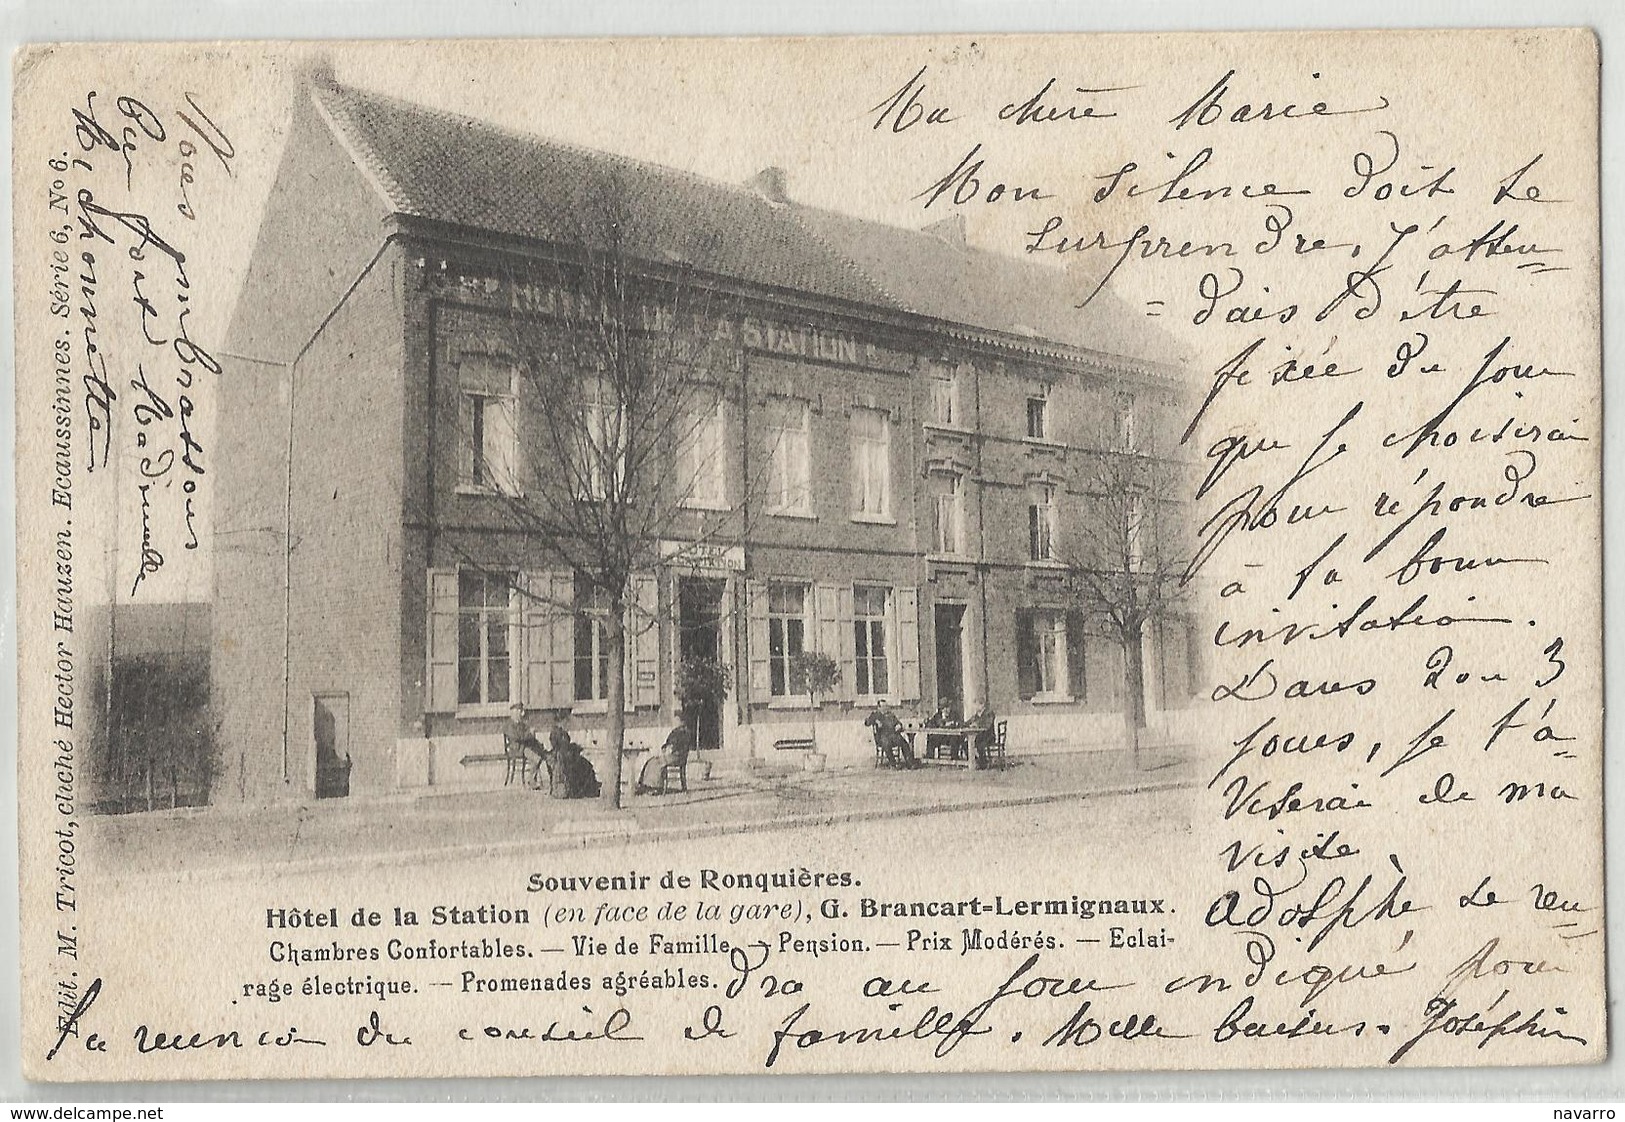 Ma chère Marie
Mon silence doit te
surprendre, J'atten=
=dais d'être
fixée du jour
que je choisirai
pour répondre
à ta bonne
invitation.
Dans 2 ou 3
jours, je t'a-
viserai de ma
visite,
Adolphe se ren=
dra au jour indiqué pour
la réunion du conseil de famille. Mille baisers. Joséphine
Nous embrassons
bien fort Madeinnelle
Michonnette
HOTEL DE LA STATION
HOTEL
STATION
Souvenir de Ronquières.
Hôtel de la Station (en face de la gare), G. Brancart=Lermignaux.
Chambres Confortables. — Vie de Famille — Pension. — Prix Modérés. — Eclai-
rage électrique. — Promenades agréables.
Edit. M. Tricot, cliché Hector Hauzen. Ecaussinnes. Série 6, No 6.
navarro